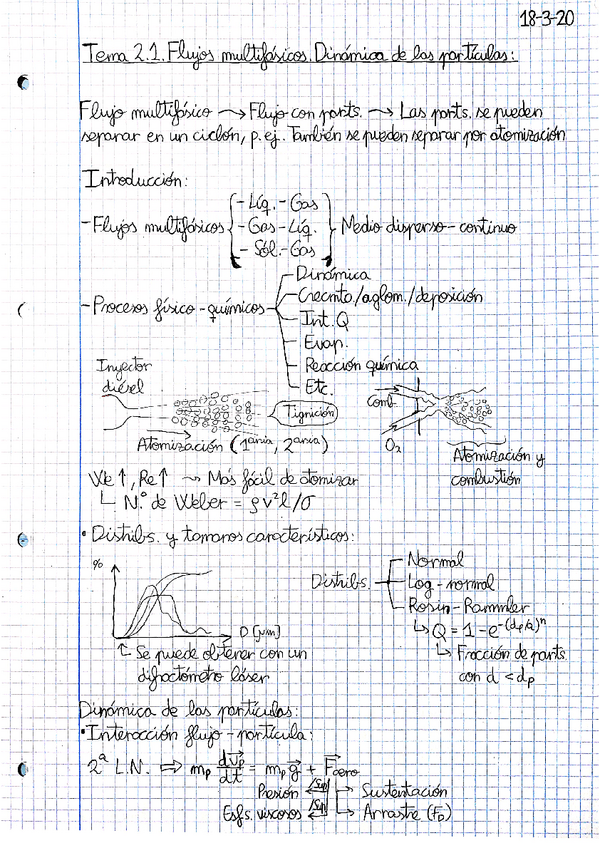 18-3-20
Tema 2.1. Flujos multifásicos. Dinámica de las partículas:
Flujo multifásico → Flujo con parts. → Las parts. se pueden
separar en un ciclón, p. ej.. También se pueden separar por atomización
Introducción:
- Flujos multifásicos
- Líq. - Gas
- Gas - Líq.
- Sól. - Gas
Medio disperso - continuo
- Procesos físico - químicos
Dinámica
Crecmto./aglom./deposición
Int. Q
Evap.
Reacción química
Etc.
Inyector
diésel
Tignición
Atomización (1ªaria, 2ªaria)
Comb.
O₂
Atomización y
combustión
We ↑, Re ↑ → Más fácil de atomizar
N.º de Weber = ρv²l/σ
• Distribs. y tamaños característicos:
%
D [μm]
Se puede obtener con un
difractómetro láser
Distribs.
Normal
Log - normal
Rosin - Rammler
Q = 1 - e^-(dp/)^n
Fracción de parts.
con d < dp
Dinámica de las partículas:
• Interacción flujo - partícula:
2ª L.N. ⇒ mp dvp/dt = mp g + Faero
Presión
Sustentación
Esfs. viscosos
Arrastre (FD)